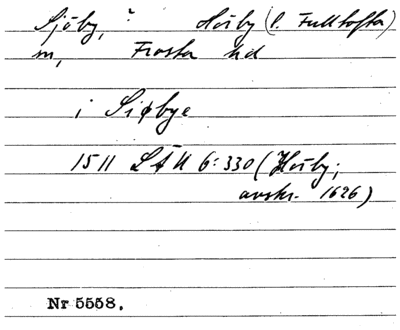 Sjöby, ? Hörby (l. Fulltofta)
sn, Frosta hd
i Siøbye
1511 LÄU 6:330 (Hörby;
avskr. 1626)
Nr 5558.